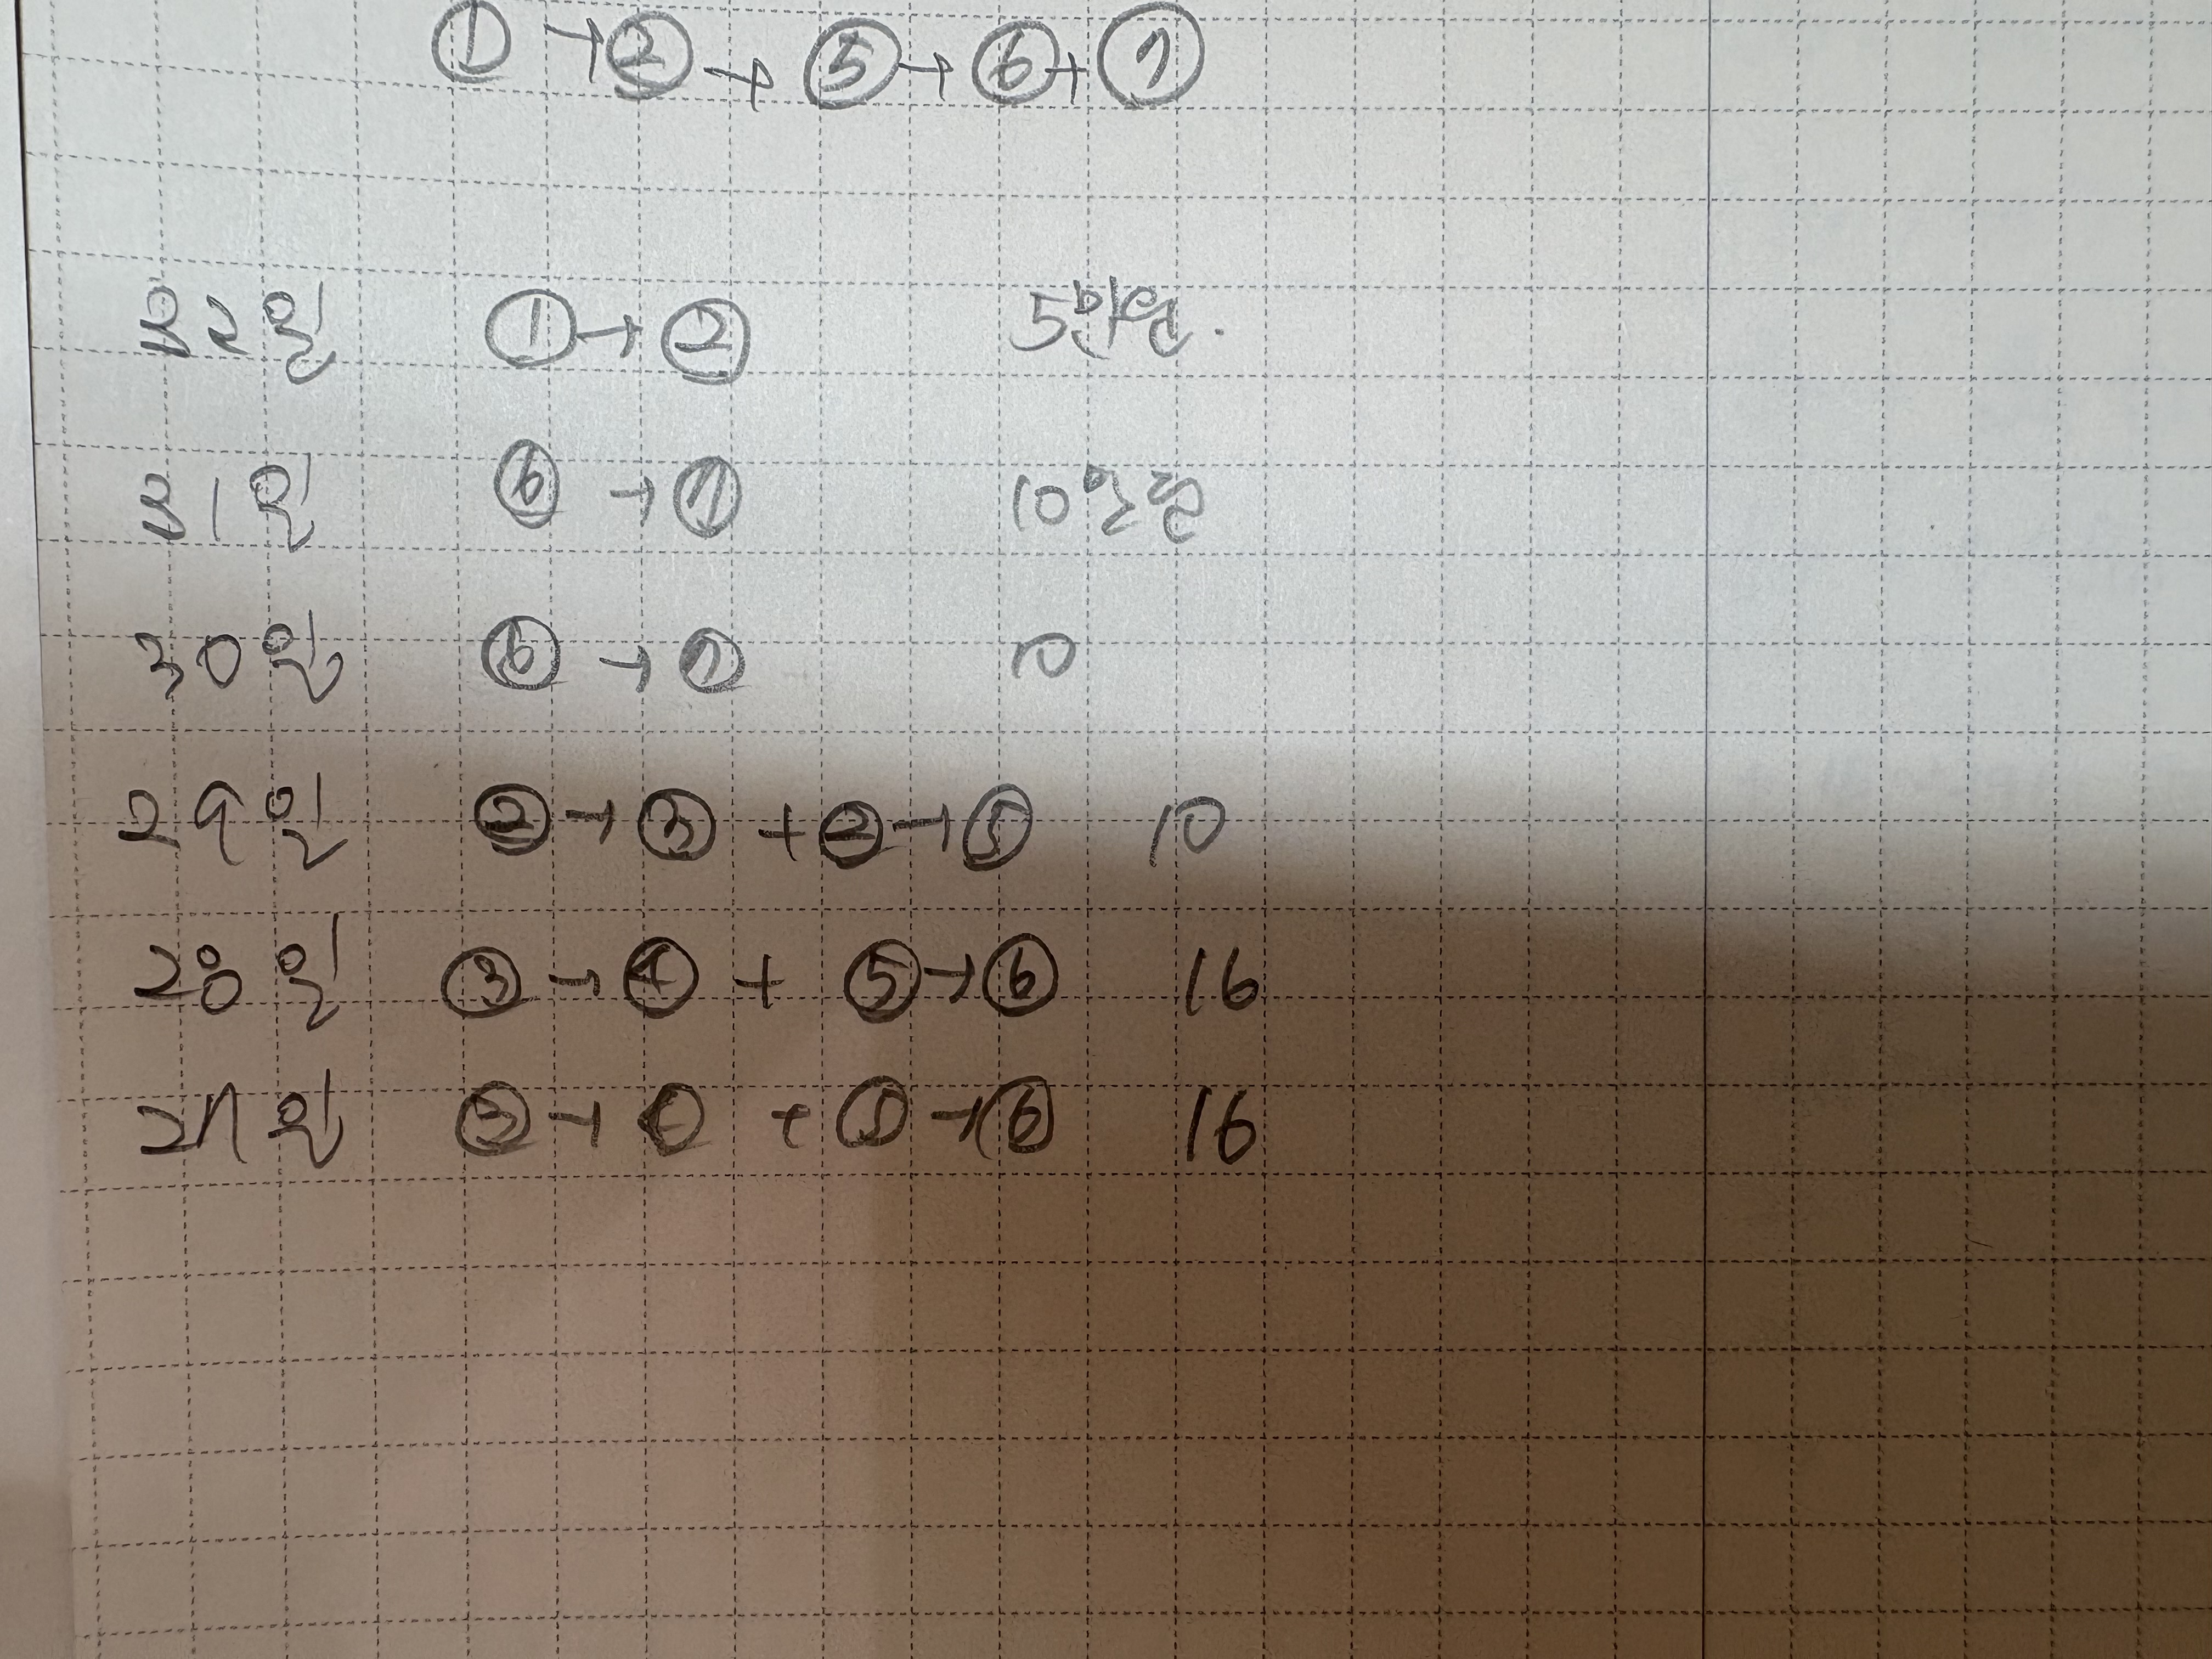 ① → ② → ⑤ → ⑥ → ⑦
32일 ① → ② 5만원.
31일 ⑥ → ⑦ 10만원
30일 ⑥ → ⑦ 10
29일 ② → ③ + ② → ⑤ 10
28일 ③ → ④ + ⑤ → ⑥ 16
27일 → + → ⑥ 16